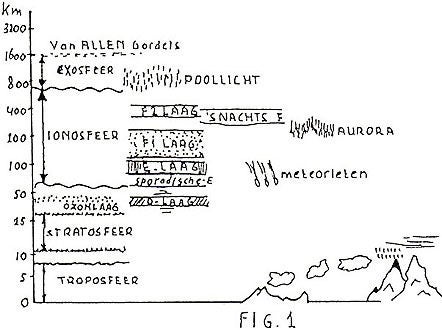 Km
3200
1600 Van ALLEN Gordels
EXOSFEER
POOLLICHT
800
400 F2 LAAG 'SNACHTS F
IONOSFEER
200 F1 LAAG AURORA
100 E-LAAG
Sporadische-E meteorieten
50
D-LAAG
OZONLAAG
15
STRATOSFEER
10
5 TROPOSFEER
0
FIG. 1